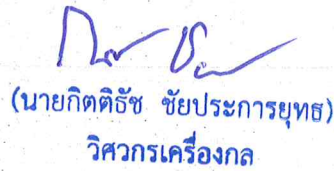 (นายกิตติธัช ชัยประการยุทธ)
วิศวกรเครื่องกล